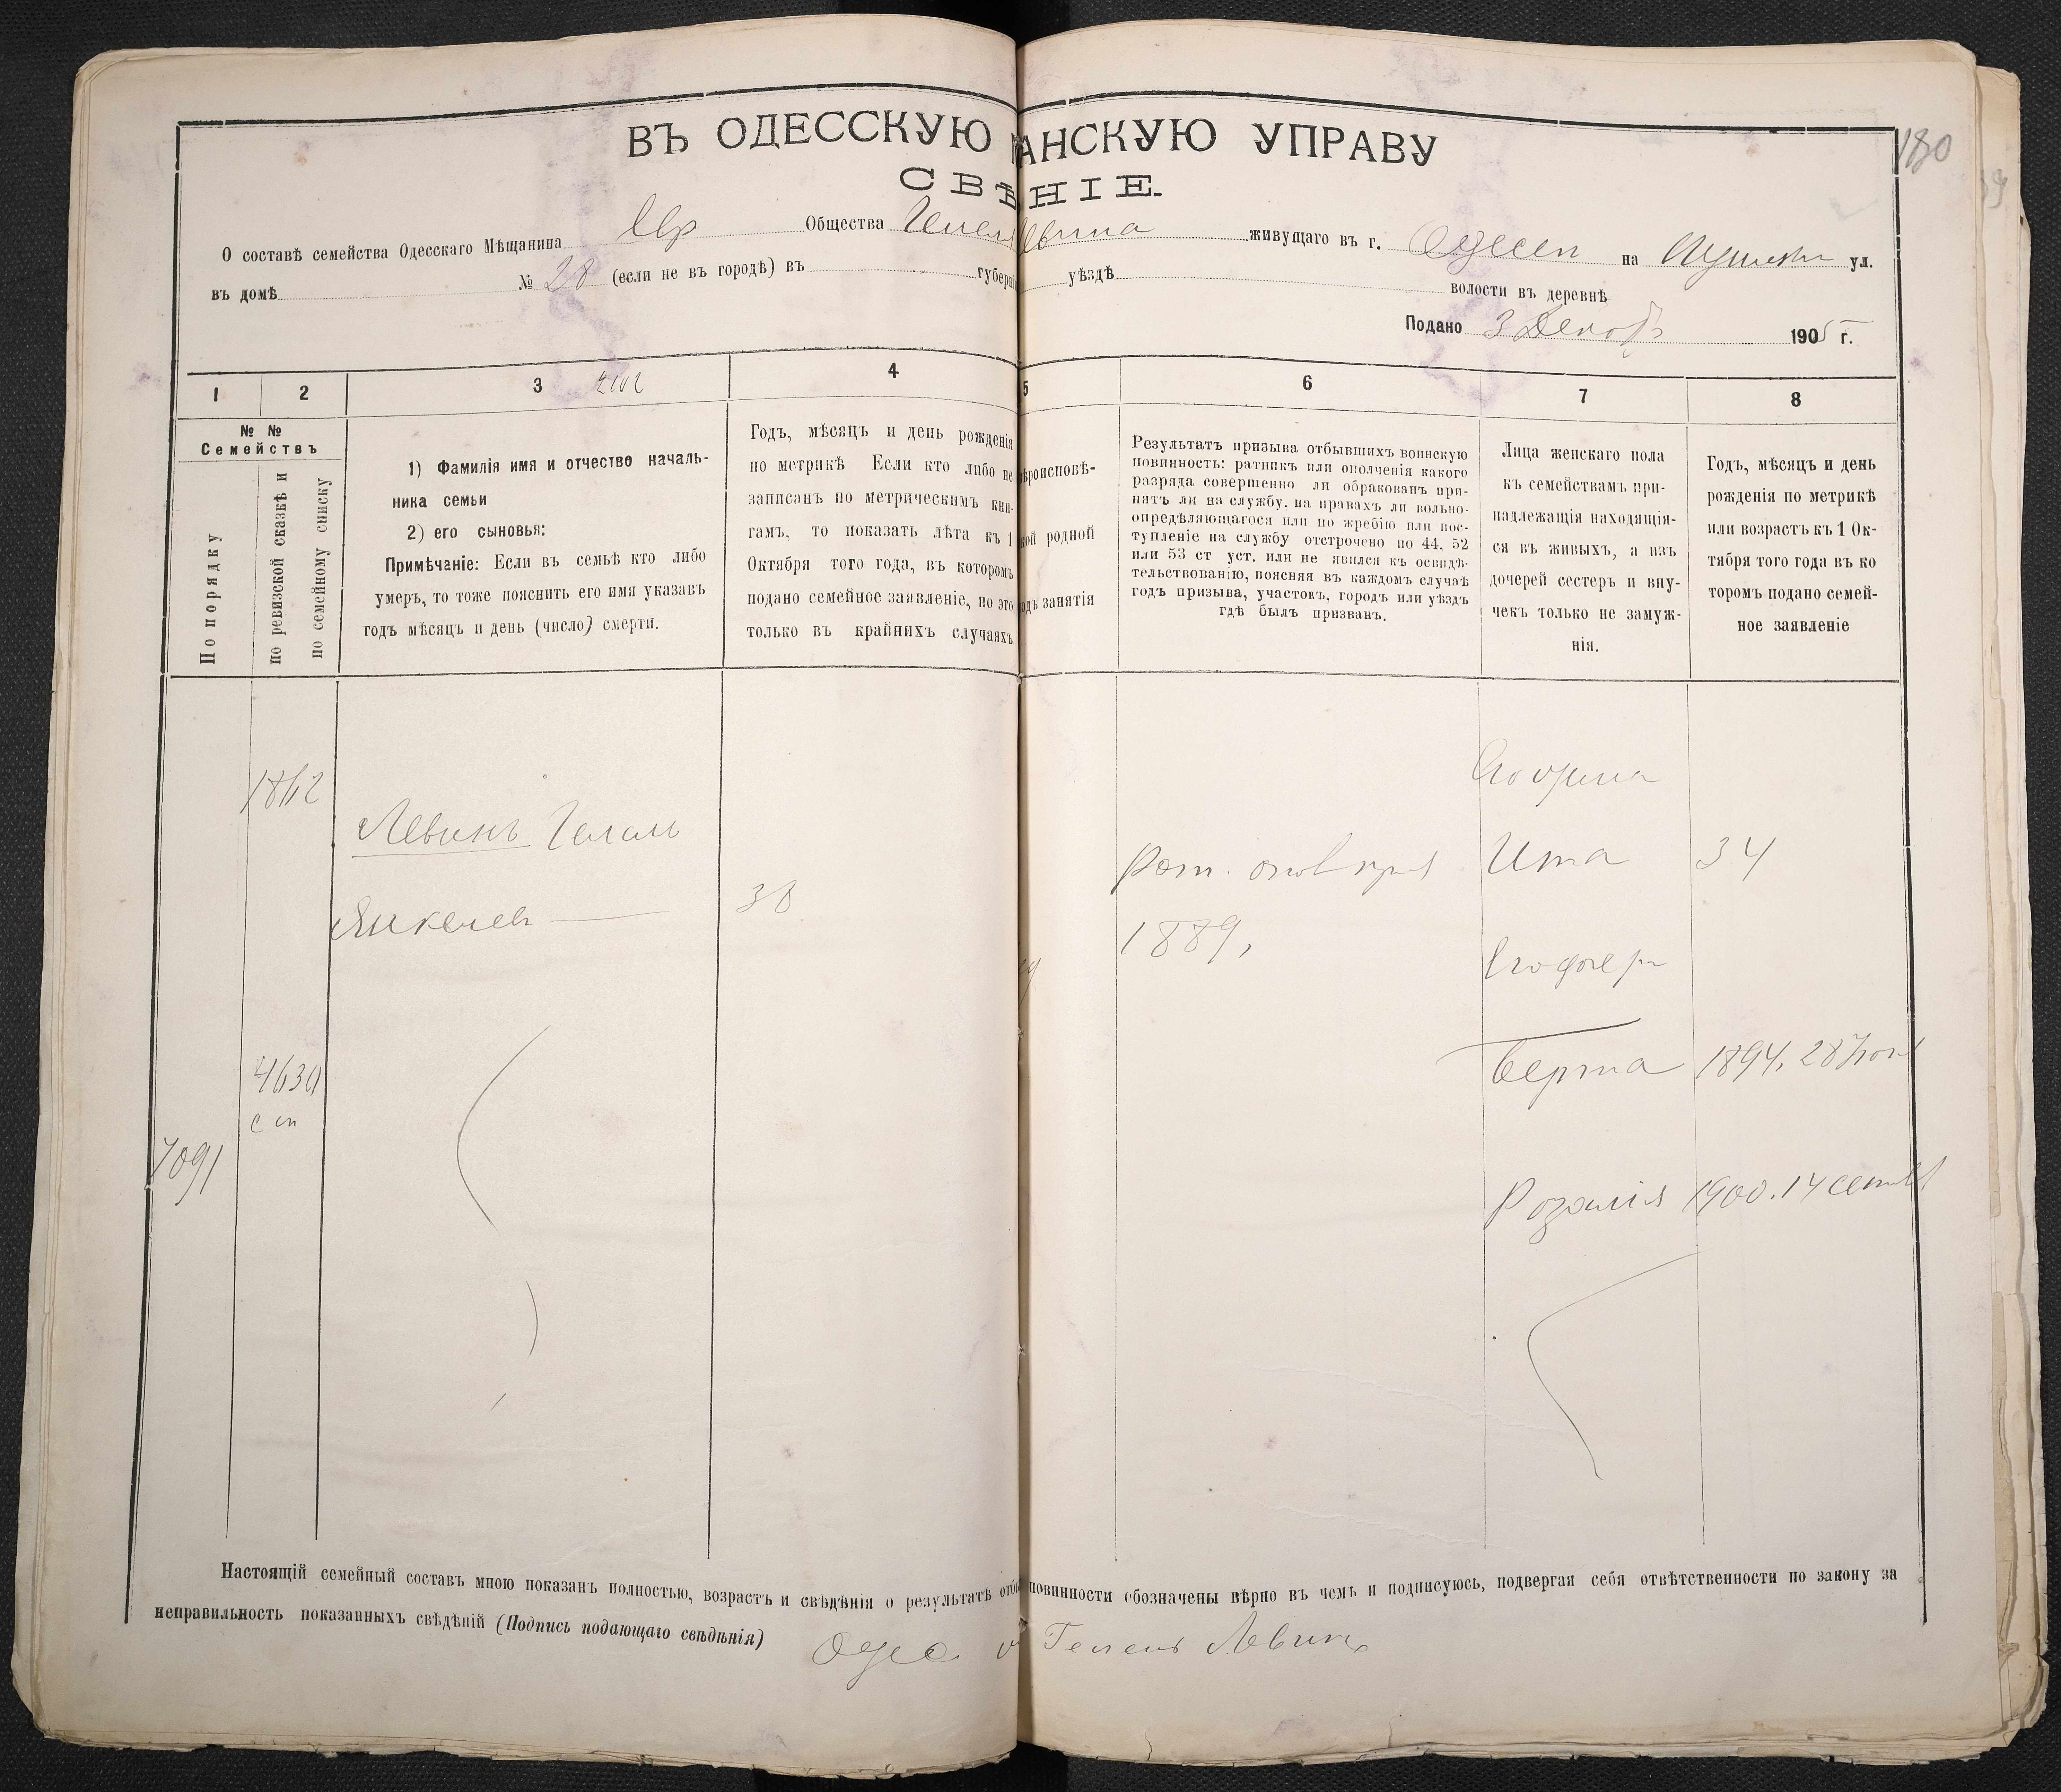 180
ВЪ ОДЕССКУЮ АНСКУЮ УПРАВУ
СВѢНІЕ.
О составѣ семейства Одесскаго Мѣщанина Евр Общества живущаго въ г. Одессѣ на ул.
въ домѣ № 28 (если не въ городѣ) въ губерні уѣздѣ волости въ деревнѣ
Подано 3 Декабр 1905 г.
1 2 3 4 5 6 7 8
№ №
Семействъ
По порядку
по ревизской сказкѣ и
по семейному списку
1) Фамилія имя и отчество началь-
ника семьи
2) его сыновья:
Примѣчаніе: Если въ семьѣ кто либо
умеръ, то тоже пояснить его имя указавъ
годъ мѣсяцъ и день (число) смерти.
Годъ, мѣсяцъ и день рожденія
по метрикѣ Если кто либо не
записанъ по метрическимъ кни-
гамъ, то показать лѣта къ 1
Октября того года, въ которомъ
подано семейное заявленіе, но это
только въ крайнихъ случаяхъ
ѣроисповѣ-
кой родной
одъ занятія
Результатъ призыва отбывшихъ воинскую
повинность: ратникъ или ополченія какого
разряда совершенно ли обракованъ при-
нятъ ли на службу, на правахъ ли вольно-
опредѣляющагося или по жребію или пос-
тупленіе на службу отсрочено по 44, 52
или 53 ст уст. или не явился къ освидѣ-
тельствованію, поясняя въ каждомъ случаѣ
годъ призыва, участокъ, городъ или уѣздъ
гдѣ былъ призванъ.
Лица женскаго пола
къ семействамъ при-
надлежащія находящія-
ся въ живыхъ, а изъ
дочерей сестеръ и вну-
чекъ только не замуж-
нія.
Годъ, мѣсяцъ и день
рожденія по метрикѣ
или возрастъ къ 1 Ок-
тября того года въ ко
торомъ подано семей-
ное заявленіе
1862
Левинъ
Янкелев
38
Рат. 
1889,
Его жена
Ита 34
Его дочери
Берта 1894, 28 Іюня
Розалія 1900. 14 сентяб
4630
сп
7091
Настоящій семейный составъ мною показанъ полностью, возрастъ и свѣдѣнія о результатѣ отбы повинности обозначены вѣрно въ чемъ и подписуюсь, подвергая себя отвѣтственности по закону за
неправильность показанныхъ свѣдѣній (Подпись подающаго свѣдѣнія)
Левинъ